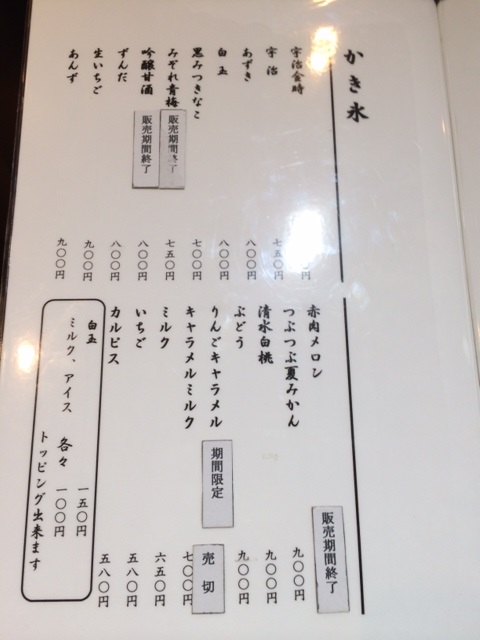 かき氷
宇治金時
宇治 七五〇円
あずき 八〇〇円
白玉 八〇〇円
黒みつきなこ 七〇〇円
みぞれ青梅 販売期間終了 七五〇円
吟醸甘酒 販売期間終了 八〇〇円
ずんだ 八〇〇円
生いちご 九〇〇円
あんず 九〇〇円
赤肉メロン 販売期間終了
つぶつぶ夏みかん 九〇〇円
清水白桃 九〇〇円
ぶどう 九〇〇円
りんごキャラメル 期間限定 売切
キャラメルミルク 七〇〇円
ミルク 六五〇円
いちご 五八〇円
カルピス 五八〇円
白玉 一五〇円
ミルク、アイス 各々 一〇〇円
トッピング出来ます